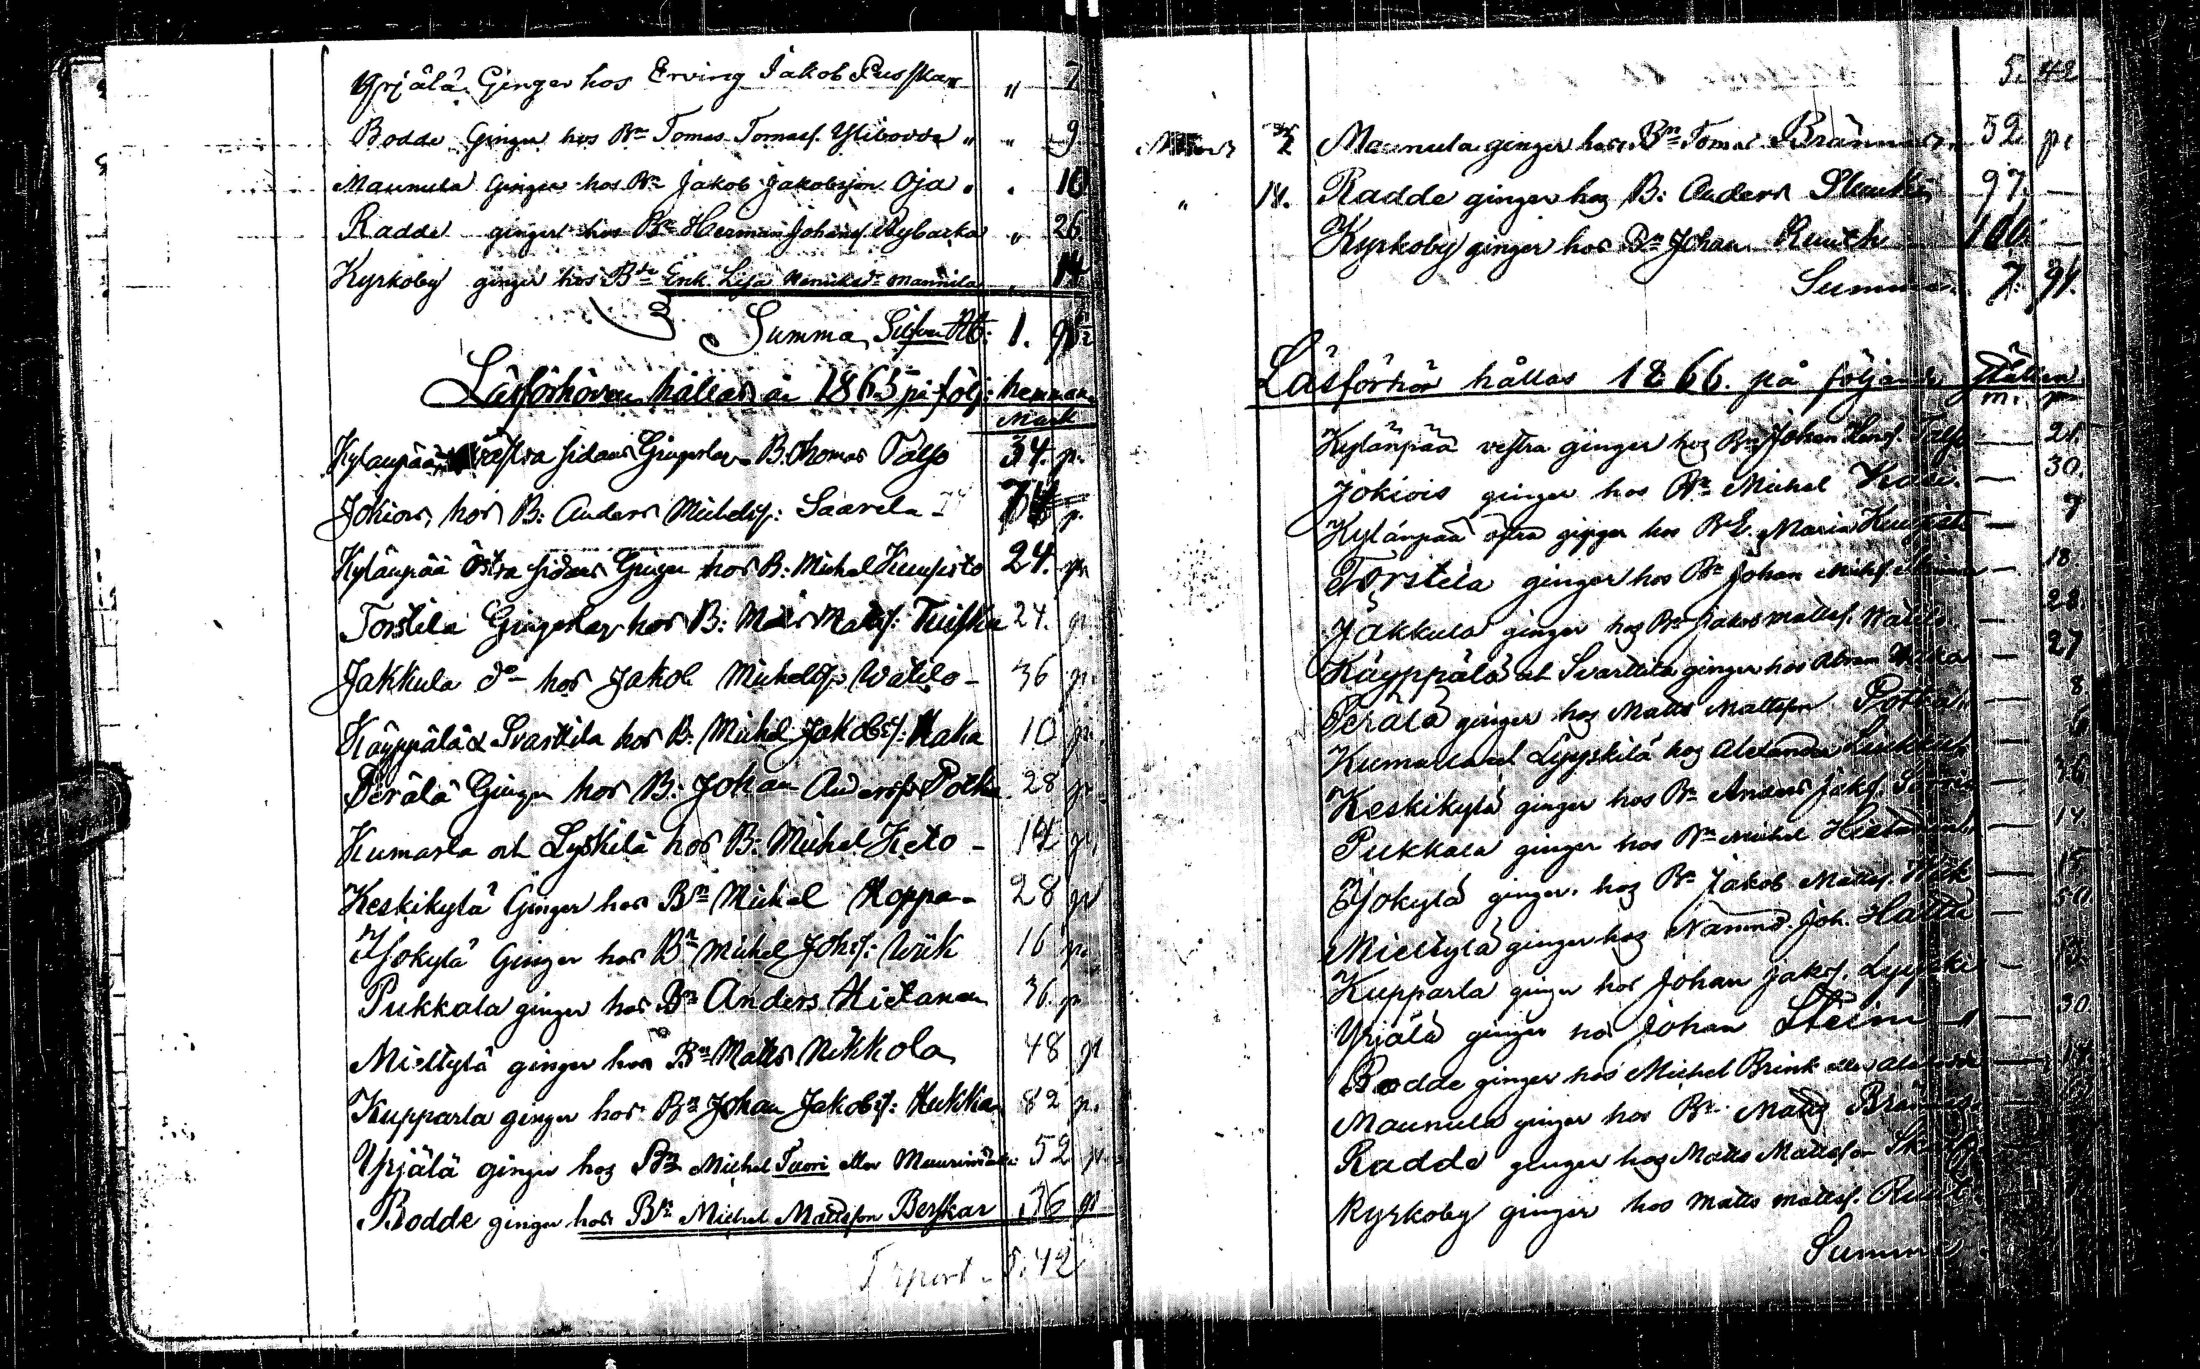 Yrjälä Ginger hos Erving Jakob " 7
Bodde Ginger hos Bn Tomas Tomass. Ylibodda " " 9
Maunula Ginger hos Bn Jakob Jakobsson Oja " " 10
Radde ginger hos Bn Herman Johans. Nybacka " 26
Kyrkoby ginger hos Enk. Lisa Henriksdr Mannila " 14
Summa Silfver Rb: 1.
Läsförhören hållas år 1865 på följ: hemman
Mark
Kylänpää västra sidans Gingerlag B. Thomas Talso 34. p.
Jokiois, hos B: Anders Michelss: Saarela - p.
Kylänpää Östra sidans Ginger hos B: Michel Kuusisto 24. p.
Torstila Gingerlag hos B: Matts Mattss: 24. p.
Jakkula do hos Jakob Michelss: Watilo - 36 p.
Käyppälä & Svarttila hos B: Michel Jakobss: Kaka 10 p.
Perälä Ginger hos B: Johan Anderss: 28 p.
Kumarla och Lyskilä hos B: Michel Keto - 14 p.
Keskikylä Ginger hos Bn Michel Hoppa - 28 p
Isokylä Ginger hos Bn Michel Johss: Wiik 16 p.
Pukkala ginger hos Bn Anders Hietanen 36. p
Mieltylä ginger hos Bn Matts Nikkola 48 p
Kupparla ginger hos Bn Johan Jakobss: 82 p.
Yrjälä ginger hos Bn Michel Tuori eller 52 p.
Bodde ginger hos Bn Michel Mattsson Berskar 36 p
Transport - 5.42
5. 42
Maunula ginger hos Bn Tomas Brännars 52 p.
" 14. Radde ginger hos B: Anders 97. —
Kyrkoby ginger hos Bn Johan Ruuth 100. —
Summa. 7. 91.
Läsförhör hållas 1866. på följande ställen
m. p.
Kylänpää vestra ginger hos Bn Johan Talso — 21.
Jokiois ginger hos Bn Michel — 30.
Kylänpää östra ginger hos Maria Kuusisto — 7
Torstila ginger hos Bn Johan Michss. — 18.
Jakkula ginger hos Bn Jakob Mattss. Watilo — 28.
Käyppälä och Svarttila ginger hos Abram Kaka — 27
Perälä ginger hos Matts Mattsson — 8
Kumarla och Lyyskilä hos Alexander —
Keskikylä ginger hos Bn Anders Jaks. — 36
Pukkala ginger hos Bn Michel Hietanen — 14.
Isokylä ginger hos Bn Jakob Mattss. Wiik — 15
Mieltylä ginger hos Nämnd. Joh. — 50.
Kupparla ginger hos Johan Jakss. —
Yrjälä ginger hos Johan Steim — 30.
Bodde ginger hos Michel Brink eller —
Maunula ginger hos Bn Matts
Radde ginger hos Matts Mattsson
Kyrkoby ginger hos Matts Mattss. Ruuth
Summa